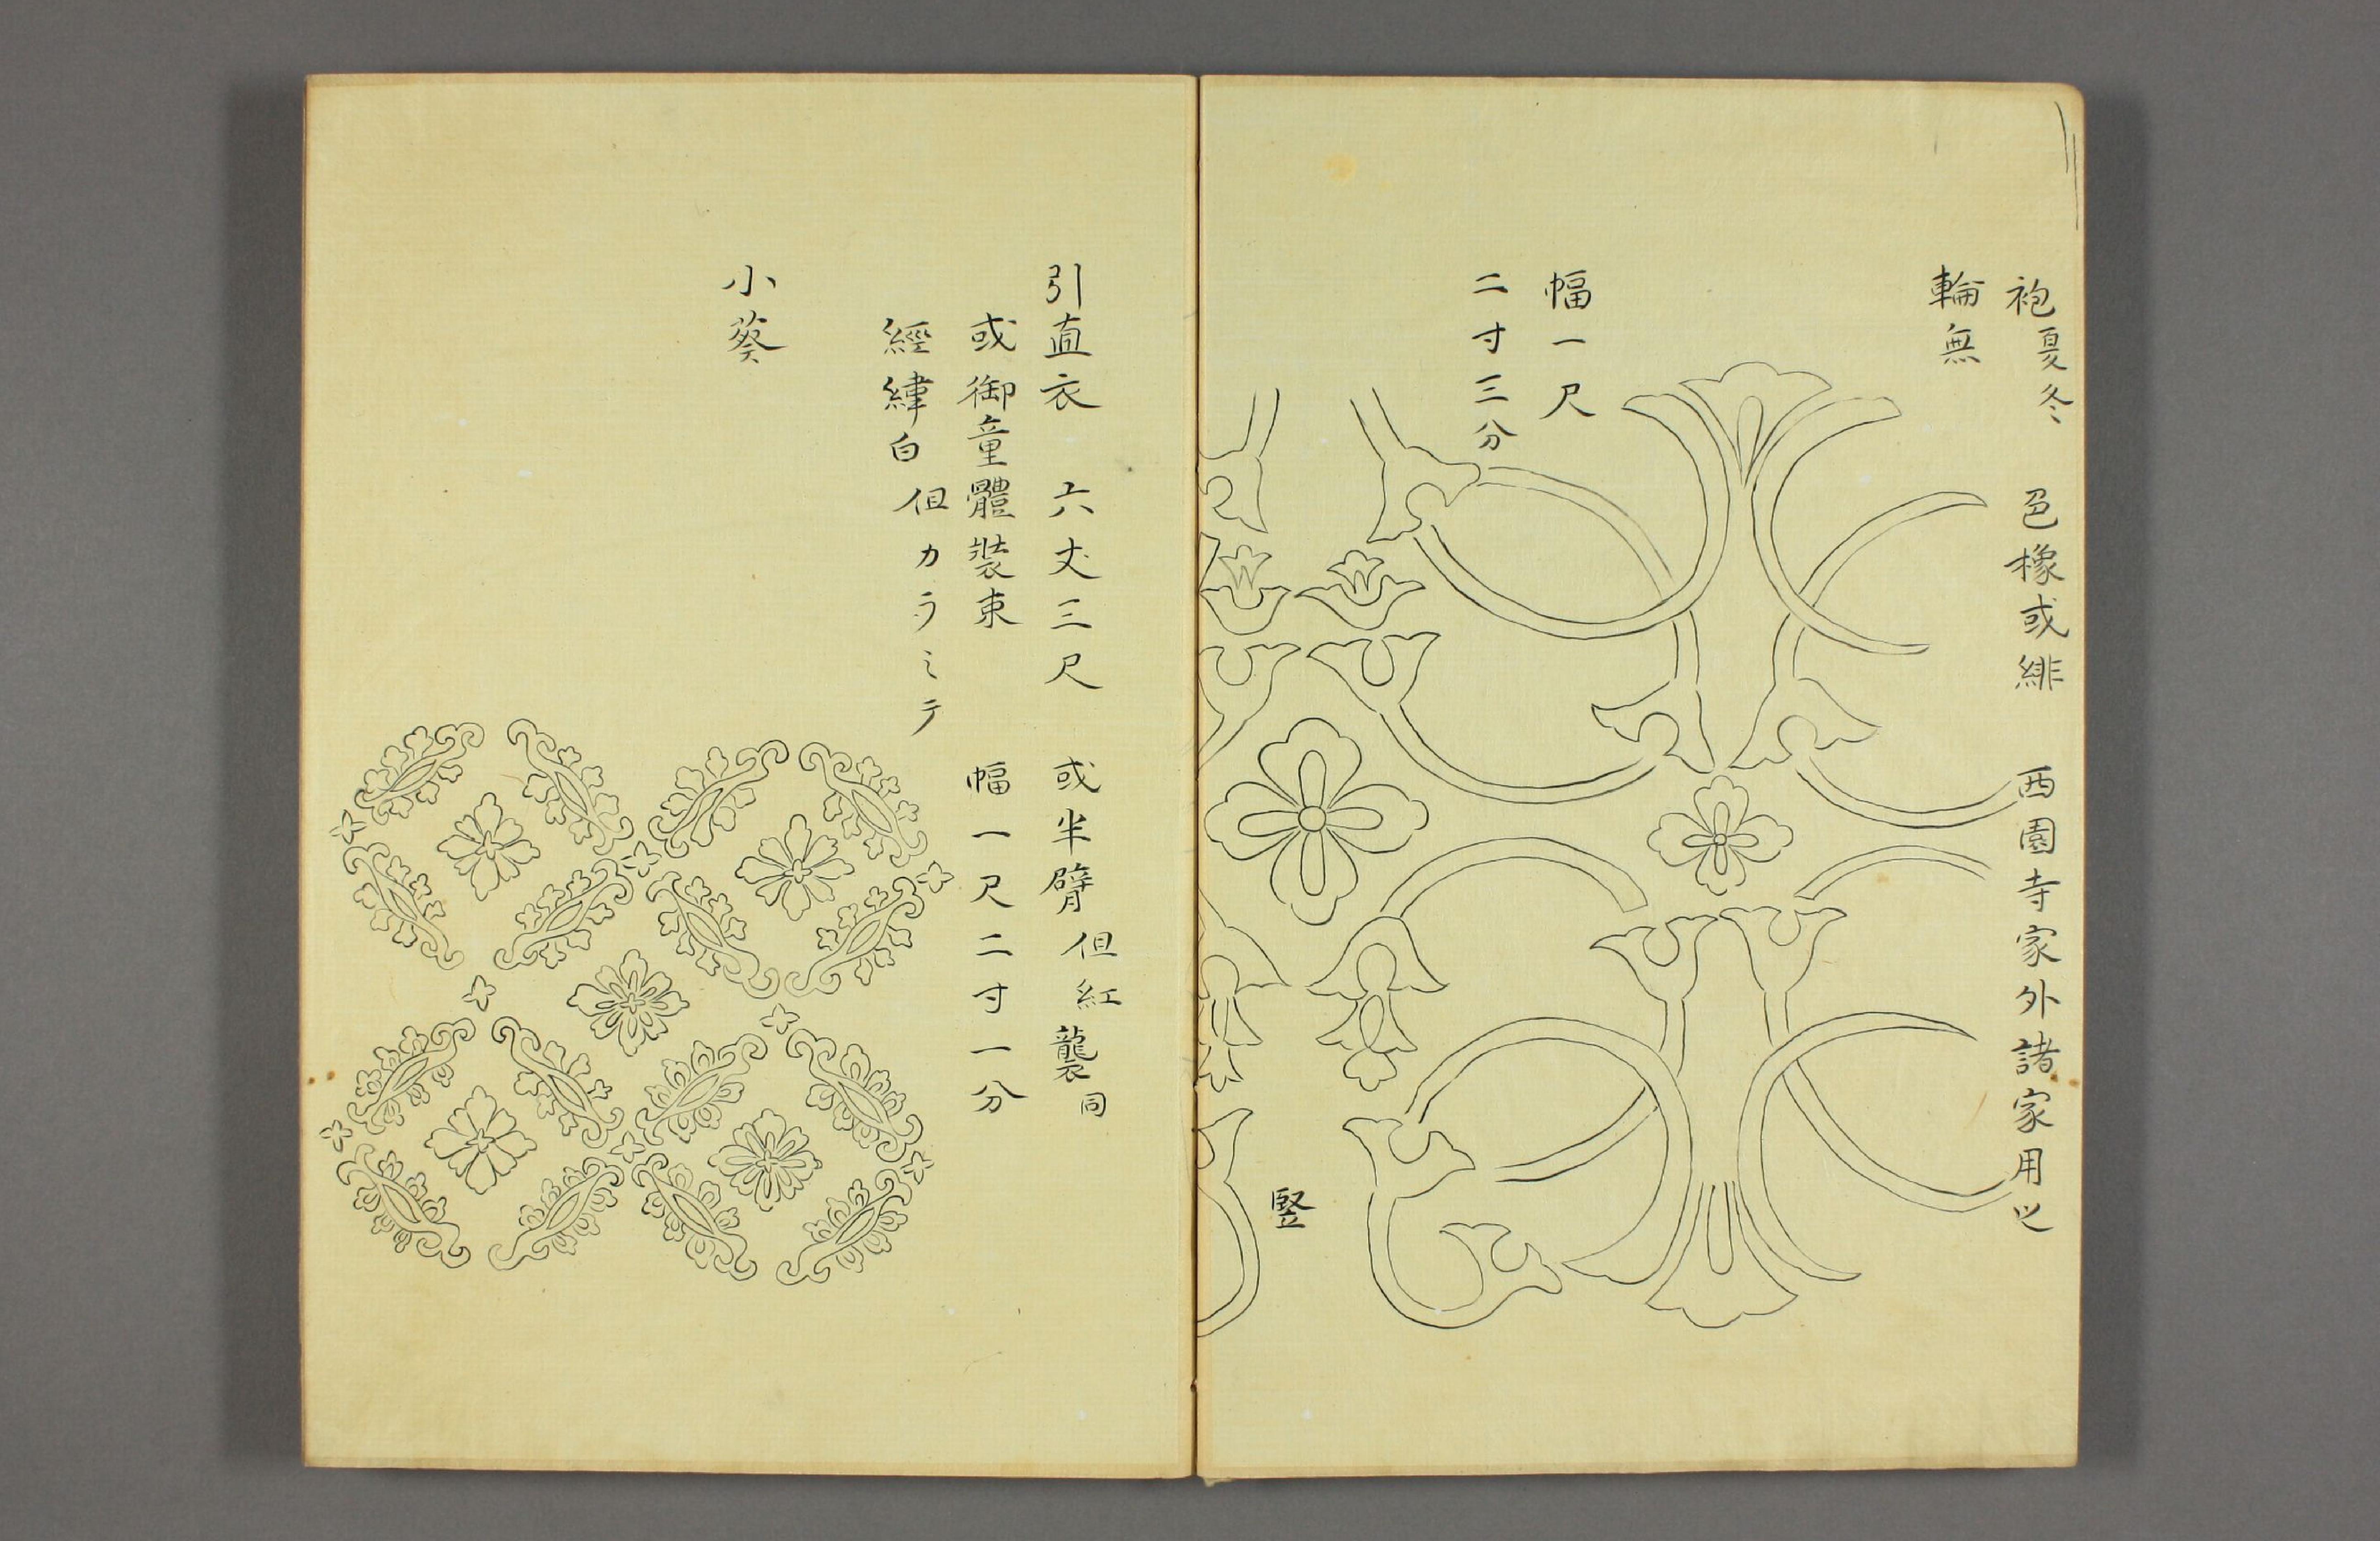 袍夏冬 色橡或緋 西園寺家外諸家用之
輪無
幅一尺
二寸三分
竪
引直衣 六丈三尺 或半臂但紅襲同
或御童體裝束 幅一尺二寸一分
經緯白但カラミテ
小葵